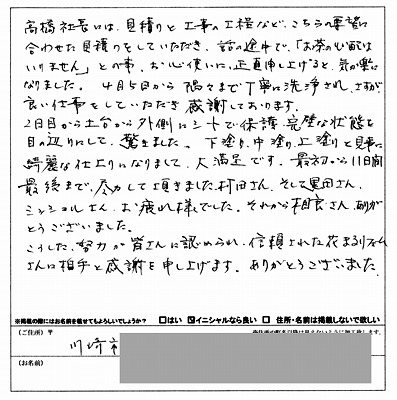 高橋社長には、見積りと工事の工程など、こちらの要望に
合わせた見積りをしていただき、話の途中で、「お茶の心配は
いりません」との事、お心使いに、正直申し上げると、気が楽に
なりました。4月5日から隅々まで丁寧に洗浄され、さすが
良い仕事をしていただき感謝しております。
2日目から土台から外側にシートで保護、完璧な状態を
目の辺りにして、驚きました。下塗り、中塗り、上塗りと見事に
綺麗な仕上りになりまして、大満足です。最初から11日間
最後まで、尽力して頂きました村田さん、そして黒田さん、
ミッシェルさん、お疲れ様でした。それから相良さん、ありが
とうございました。
こうした、努力が皆さんに認められ、信頼された花まるリフォーム
さんに拍手と感謝を申し上げます。ありがとうございました。
※掲載の際にはお名前を載せてもよろしいでしょうか? □はい ☑イニシャルなら良い □ 住所・名前は掲載しないで欲しい
(ご住所) 〒
川崎市
(お名前)